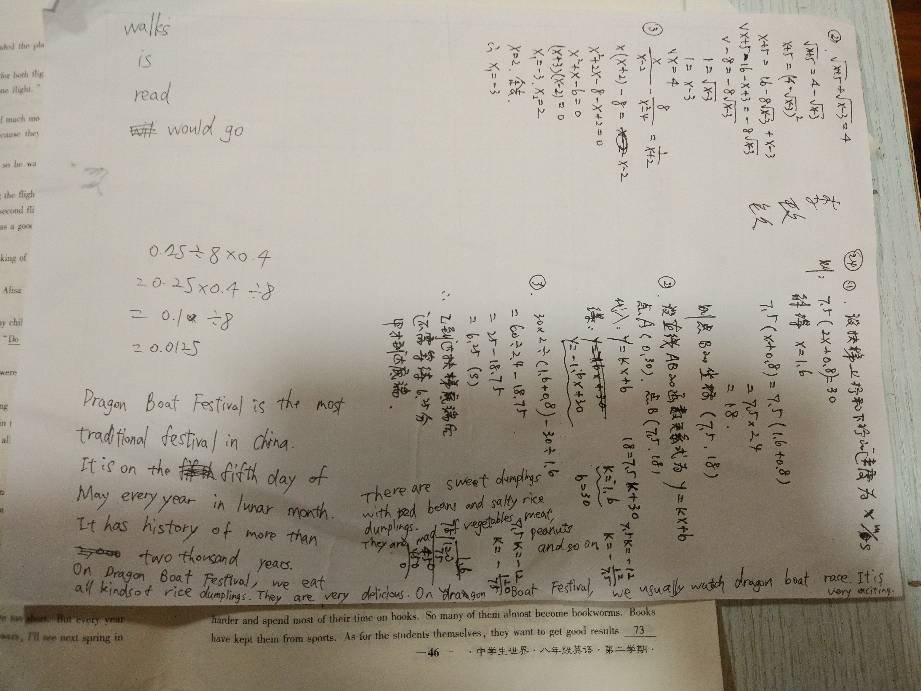 walks
is
read
would go
0.25÷8×0.4
=0.25×0.4÷8
=0.1÷8
=0.0125
Dragon Boat Festival is the most
traditional festival in China.
It is on the fifth day of
May every year in lunar month.
It has history of more than
two thousand years.
On Dragon Boat Festival, we eat
all kinds of rice dumplings. They are very delicious. On dragon Boat Festival, we usually watch dragon boat race. It is
very exciting.
There are sweet dumplings
with red beans and salty rice
dumplings.
They are mad of vegetables, meat,
peanuts
and so on
② √(x+5)+√(x-3)=4
√(x+5)=4-√(x-3)
x+5=(4-√(x-3))²
x+5=16-8√(x-3)+x-3
x+5-16-x+3=-8√(x-3)
-8=-8√(x-3)
1=√(x-3)
1=x-3
x=4
③ x/(x-2)-8/(x²-4)=1/(x+2)
x(x+2)-8=x-2
x²+2x-8-x+2=0
x²+x-6=0
(x+3)(x-2)=0
x₁=-3, x₂=2
24 ①. 设扶梯上行和下行的速度为x m/s
则: 7.5(2x+0.8)=30
解得 x=1.6
7.5(x+0.8)=7.5(1.6+0.8)
=7.5×2.4
=18.
则点B的坐标(7.5, 18)
②. 设直线AB的函数关系式为 y=kx+b
点A(0,30). 点B(7.5, 18)
代入: y=kx+b
18=7.5k+30
7.5k=-12
b=30
y=-1.6x+30
③. 30×2÷(1.6+0.8)-30÷1.6
=60÷2.4-18.75
=25-18.75
=6.25 (s)
∴ 乙到达扶梯底端后
还需等待6.25分
甲才到达底端.
harder and spend most of their time on books. So many of them almost become bookworms. Books
have kept them from sports. As for the students themselves, they want to get good results 73
—46— ·中学生世界·八年级英语·第二学期·
But every year
I'll see next spring in